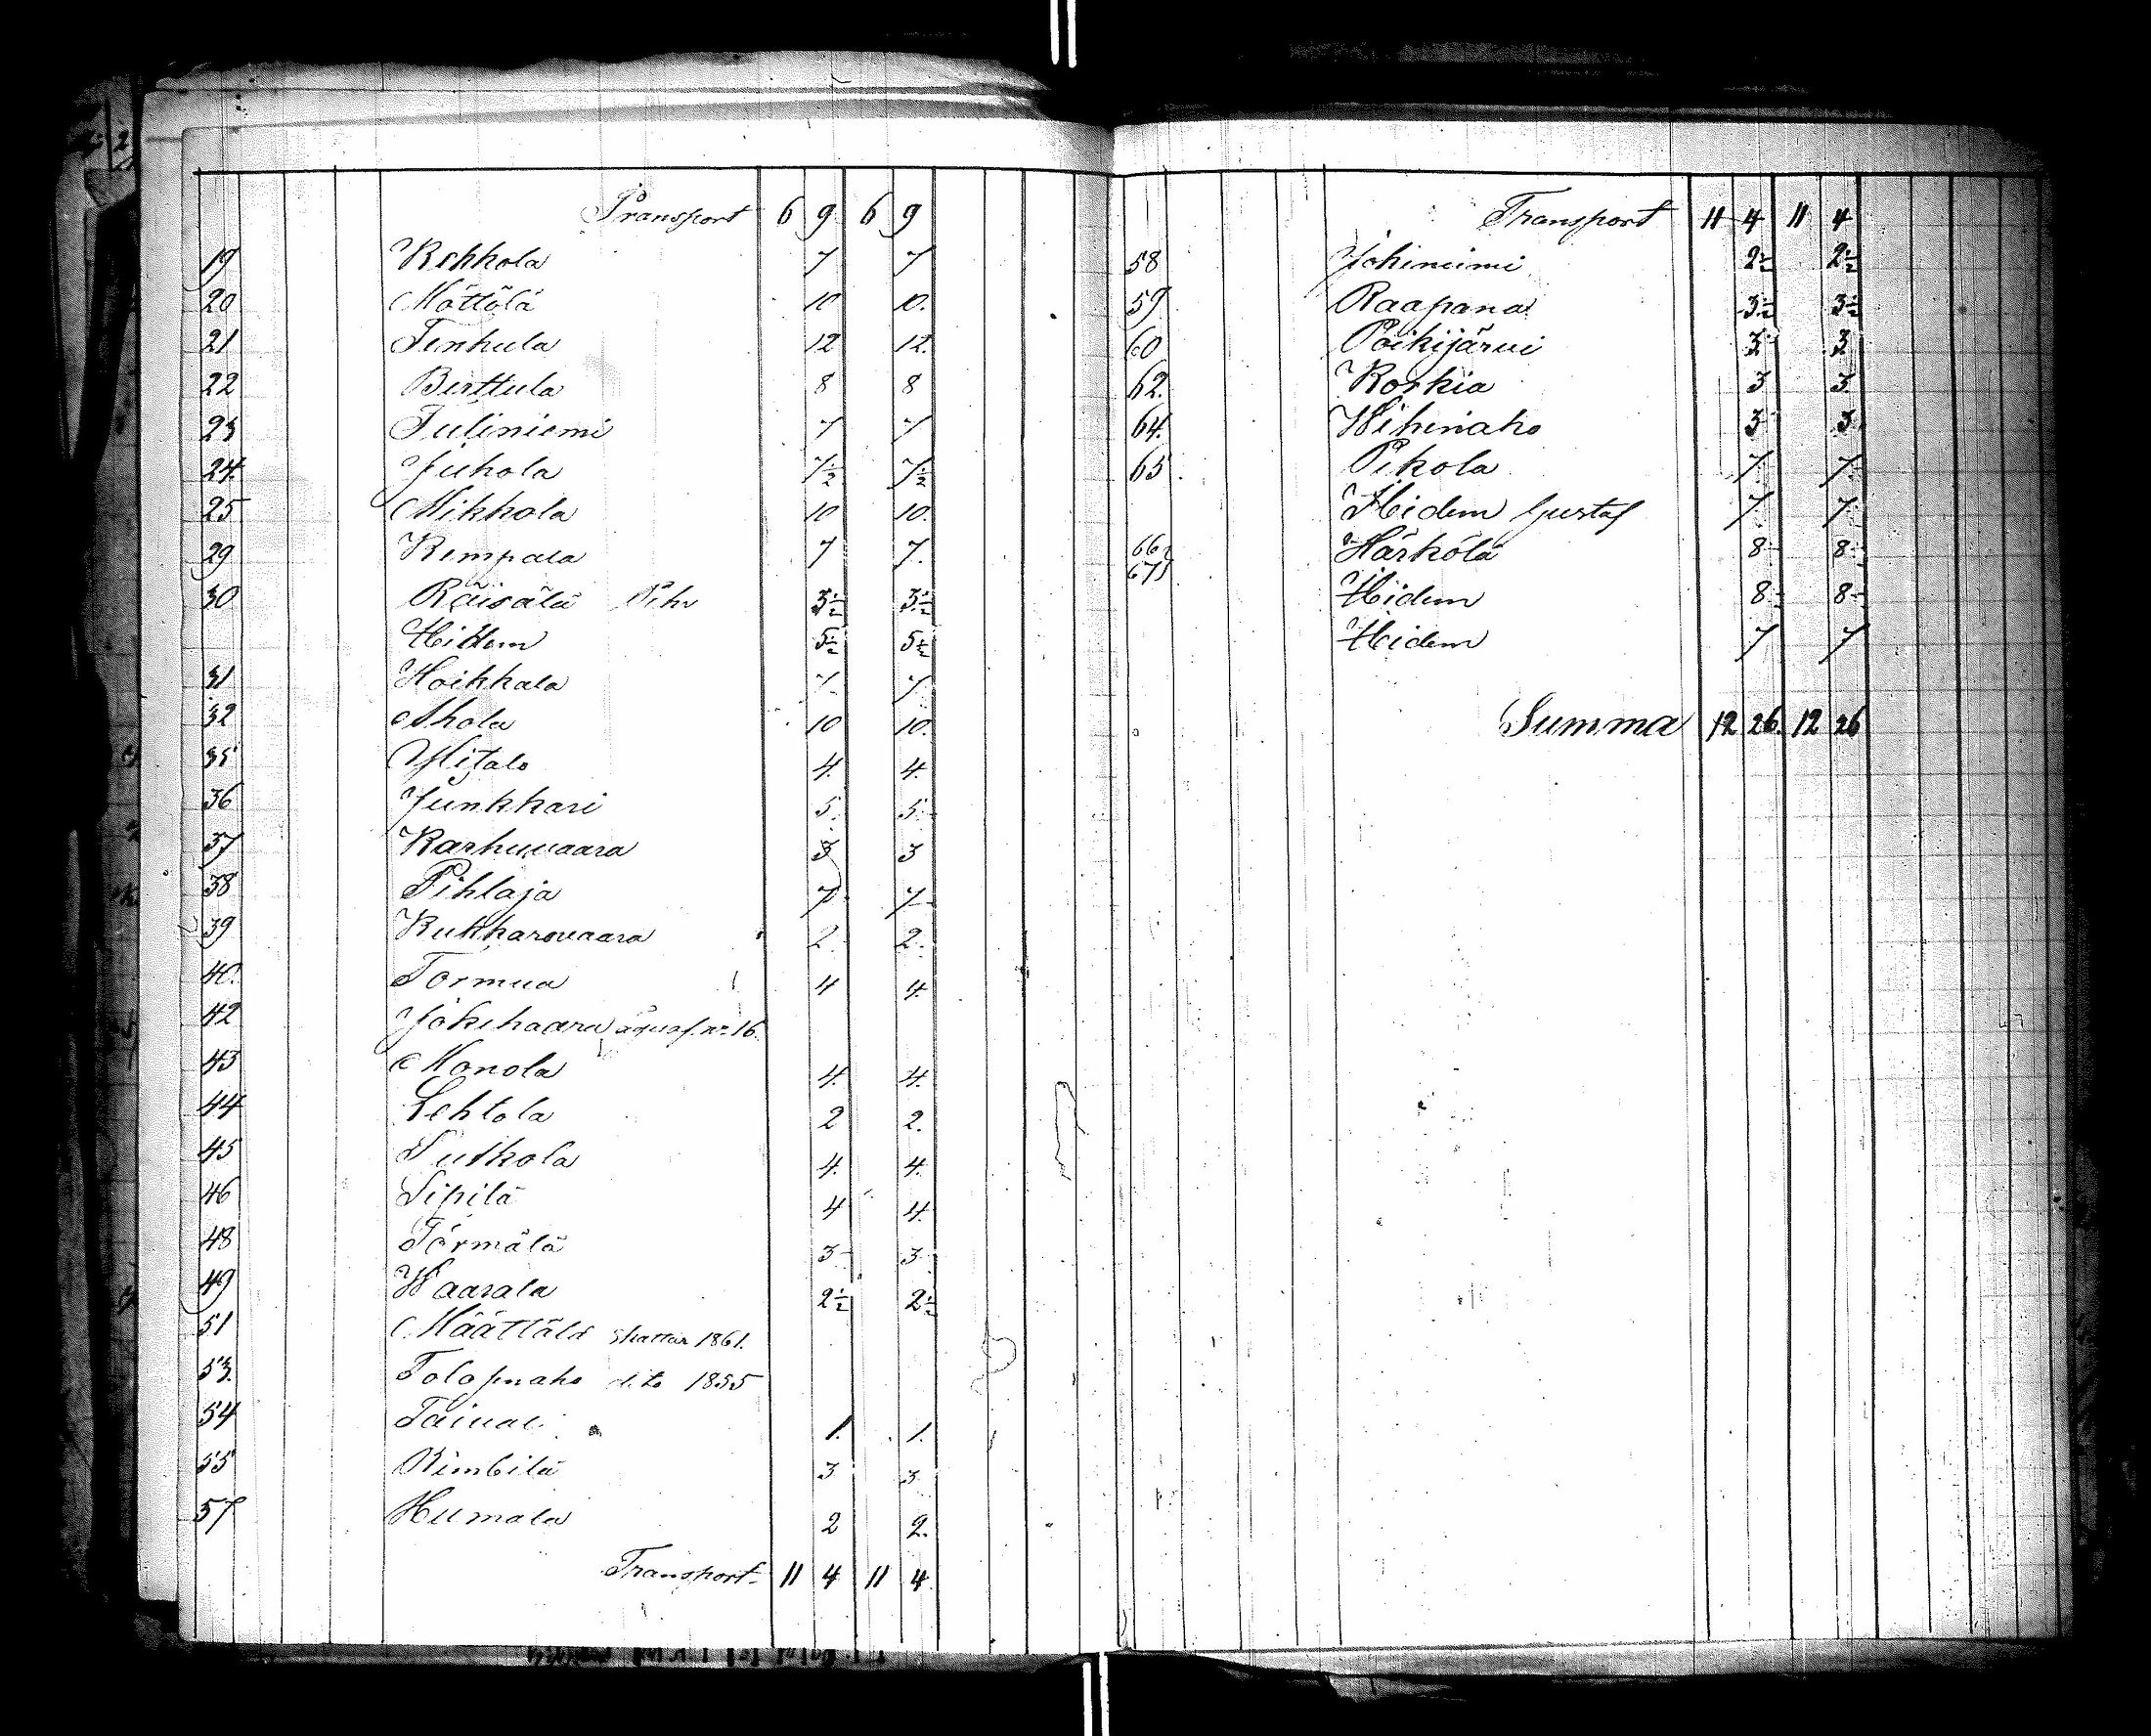 Transport 6 9 6 9
19 Rehkola 7 7
20 Möttölä 10 10.
21 Tenhula 12 12.
22 Berttula 8 8
23 Tuliniemi 7 7
24. Juhola 7½ 7½
25 Mikkola 10 10.
29 Kempala 7 7.
30 Räisälä 3½ 3½
Hidem 5½ 5½
31 Hoikkala 7 7
32 Ahola 10 10.
35 Ylitalo 4. 4.
36 Junkkari 5. 5.
37 Karhuvaara 3 3
38 Pihlaja 7 7
39 Kukkarovaara 2. 2.
40. Tormua 4 4.
42 Jokihaara nr. 16.
43 Manola 4. 4.
44 Lehtola 2 2.
45 Sutkola 4. 4.
46 Sipilä 4 4.
48 Törmälä 3 3
49 Waarala 2½ 2½
51 Määttälä skattar 1861.
53. dito 1855
54 1. 1.
55 Kimbilä 3 3
57 Humala 2 2.
Transport. 11 4 11 4
Transport 11 4 11 4
58 Jokiniemi 2½ 2½
59 Raapana 3½ 3½
60 Poikijärvi 3 3
62. Korkia 3 3
64. Wihinaho 3 3
65 Pikola 7 7
Hidem Gustaf 7 7
66 Härkölä 8 8
67 Hidem 8 8
Hidem 7 7
Summa 12 26. 12 26